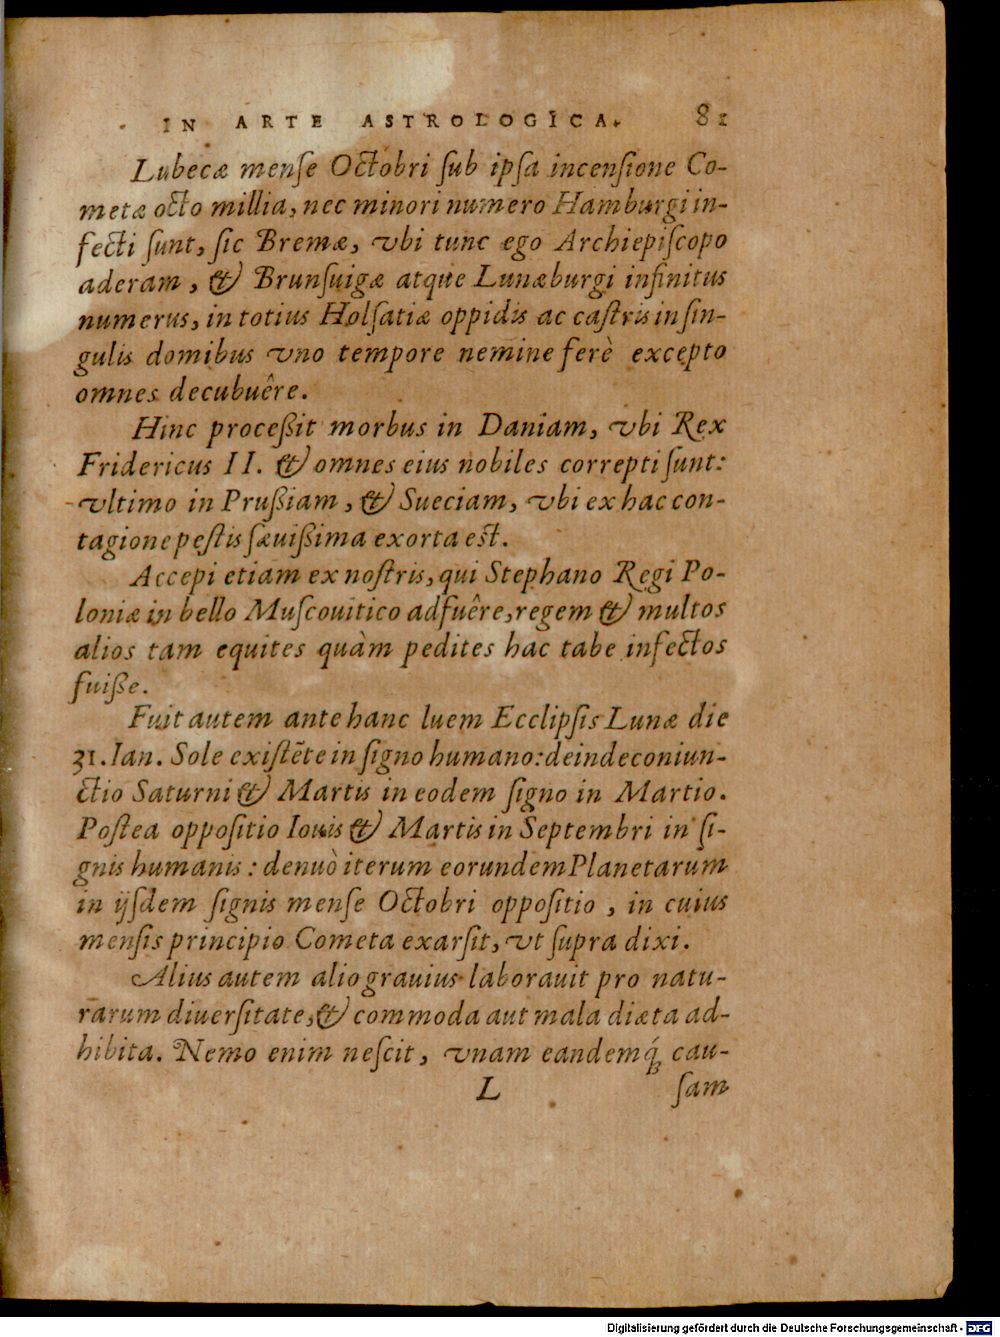 IN ARTE ASTROLOGICA. 81
Lubecæ mense Octobri ſub ipſa incenſione Co-
metæ octo millia, nec minori numero Hamburgi in-
fecti ſunt, ſic Bremæ, vbi tunc ego Archiepiſcopo
aderam, & Brunſuigæ atque Lunæburgi infinitus
numerus, in totius Holſatiæ oppidis ac caſtris in ſin-
gulis domibus vno tempore nemine ferè excepto
omnes decubuêre.
Hinc proceßit morbus in Daniam, vbi Rex
Fridericus II. & omnes eius nobiles correpti ſunt:
vltimo in Prußiam, & Sueciam, vbi ex hac con-
tagione peſtis ſæuißima exorta eſt.
Accepi etiam ex noſtris, qui Stephano Regi Po-
loniæ in bello Muſcouitico adfuêre, regem & multos
alios tam equites quàm pedites hac tabe infectos
fuiße.
Fuit autem ante hanc luem Ecclipſis Lunæ die
31. Ian. Sole exiſtẽte in ſigno humano: deinde coniun-
ctio Saturni & Martis in eodem ſigno in Martio.
Poſtea oppoſitio Iouis & Martis in Septembri in ſi-
gnis humanis: denuò iterum eorundem Planetarum
in ijſdem ſignis menſe Octobri oppoſitio, in cuius
menſis principio Cometa exarſit, vt ſupra dixi.
Alius autem alio grauius laborauit pro natu-
rarum diuerſitate, & commoda aut mala diæta ad-
hibita. Nemo enim neſcit, vnam eandemq́; cau-
L ſam
Digitalisierung gefördert durch die Deutsche Forschungsgemeinschaft - DFG